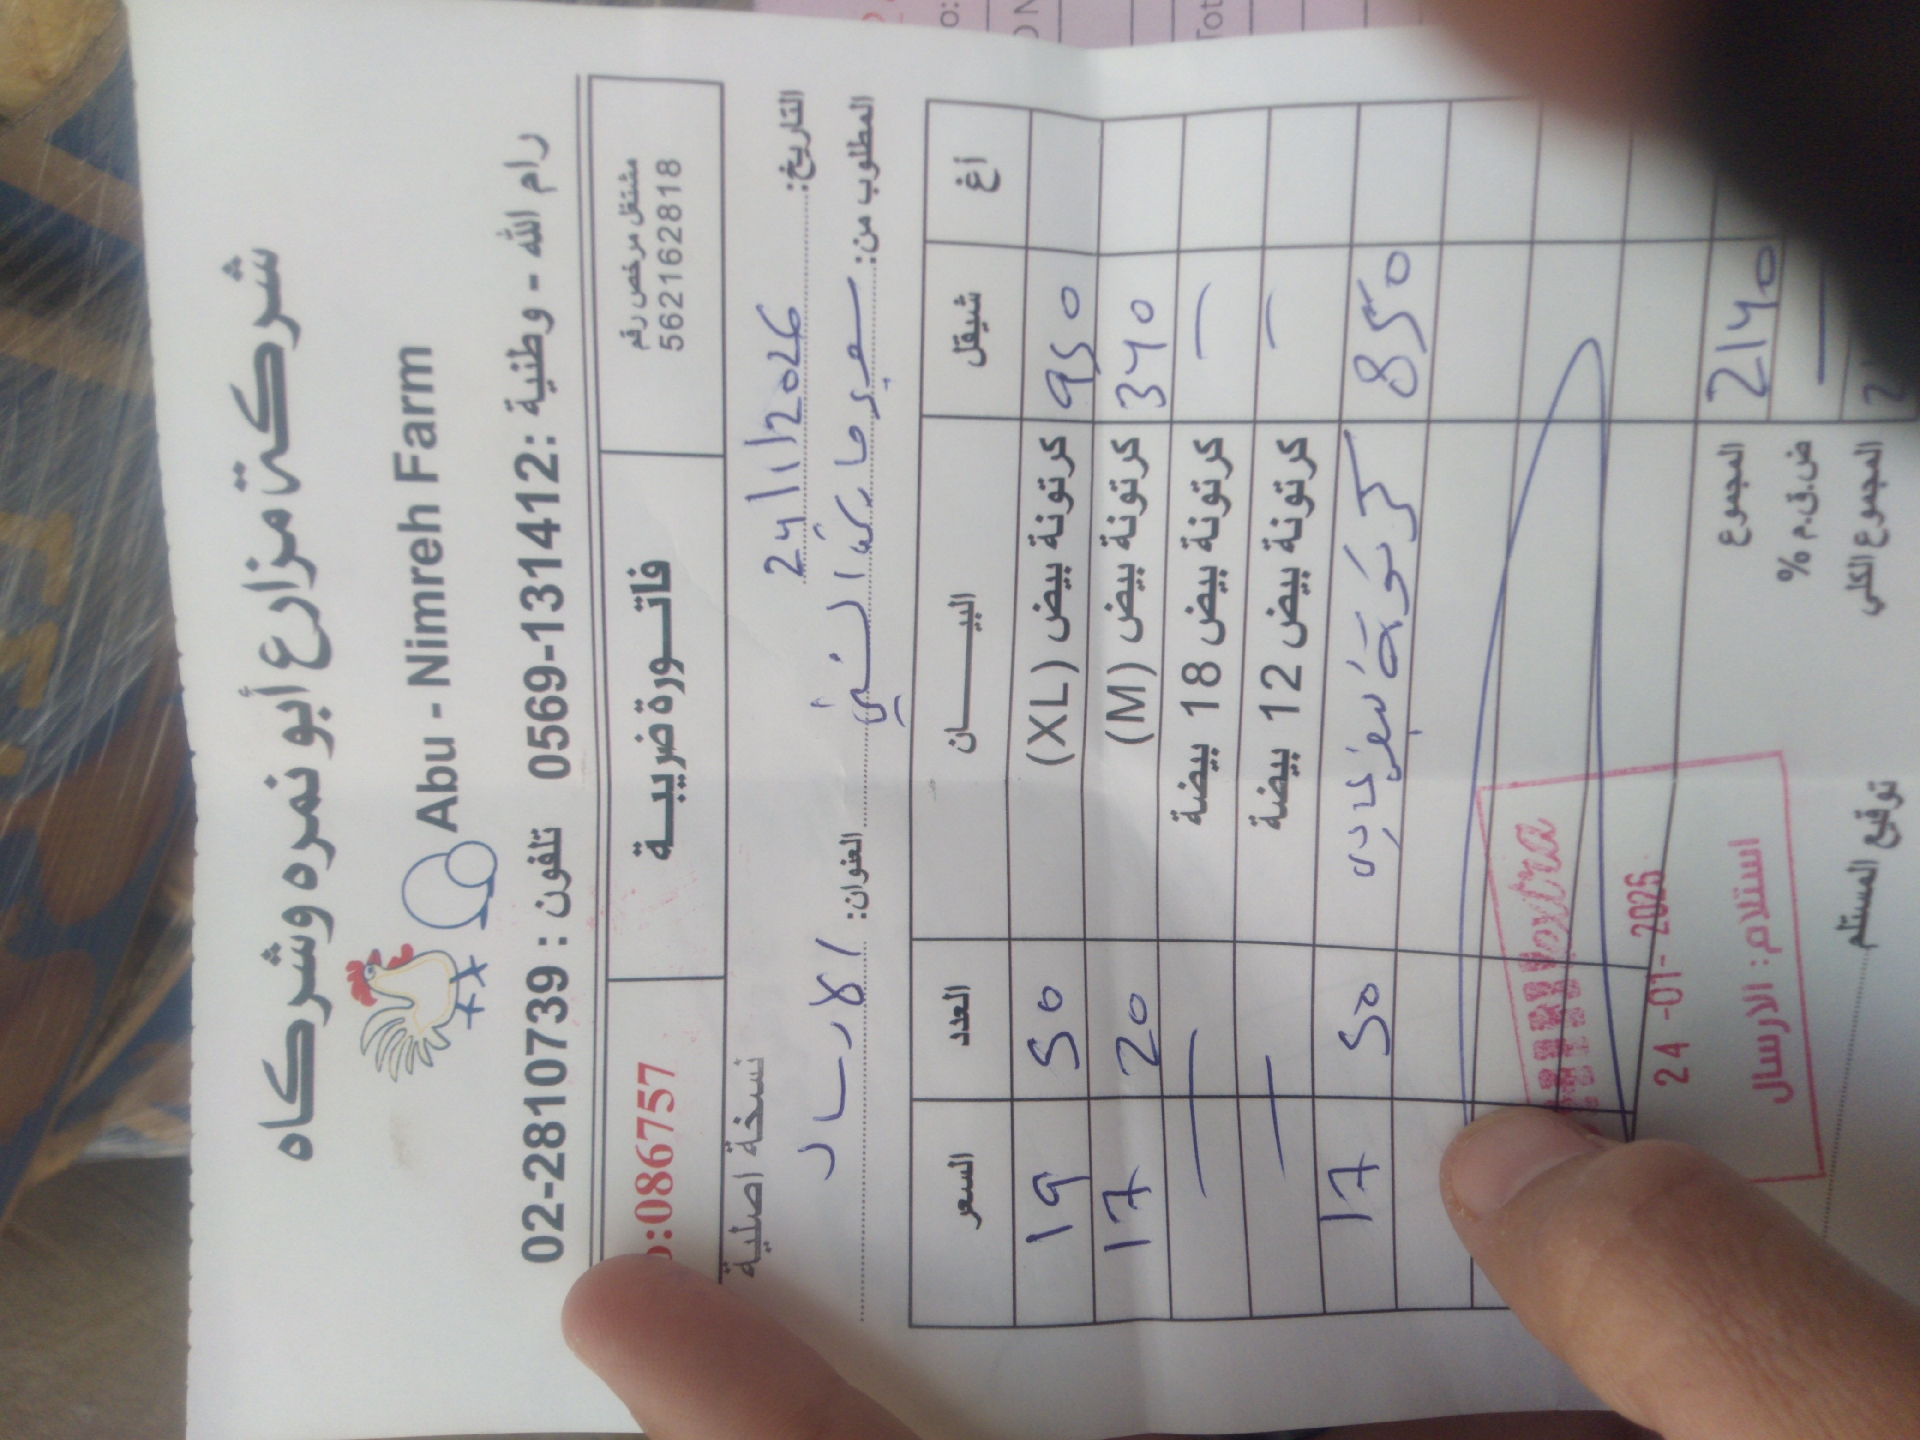 شركة مزارع أبو نمره وشركاه
Abu - Nimreh Farm
تلفون : 02-2810739 0569-131412 وطنية : رام الله -
مشتغل مرخص رقم
562162818
فاتورة ضريبية
:086757
نسخة اصلية
التاريخ: 24/1/2026
المطلوب من: سوبر ماركت
العنوان: الارسال
السعر العدد البيان شيقل أغ
19 50 كرتونة بيض (XL) 950
17 20 كرتونة بيض (M) 340
— — كرتونة بيض 18 بيضة —
— — كرتونة بيض 12 بيضة —
17 50 كرتونة بيض 850
المجموع 2140
ض.ق.م % —
المجموع الكلي
24 -01- 2026
استلام: الارسال
توقيع المستلم